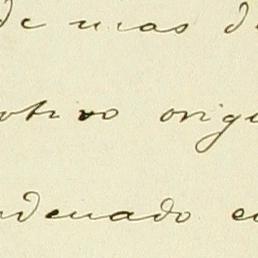 de mas d
otivo orig
denado e